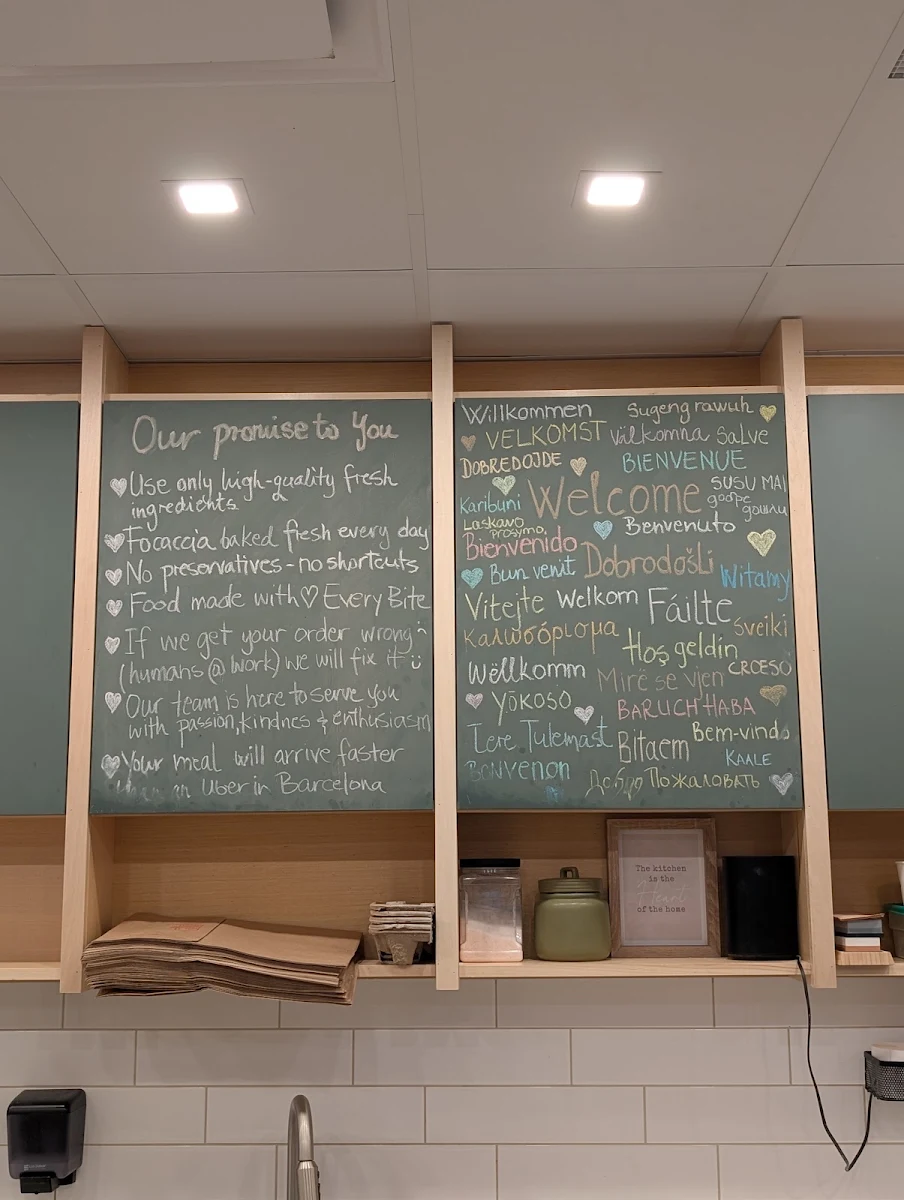 Our promise to You
Use only high-quality fresh
ingredients
Focaccia baked fresh every day
No preservatives - no shortcuts
Food made with ♡ Every Bite
If we get your order wrong
(humans @ work) we will fix it
Our team is here to serve you
with passion, kindnes & enthusiasm
Your meal will arrive faster
than an Uber in Barcelona
Willkommen
Sugeng rawuh
VELKOMST
Välkomna
SaLve
DOBREDOJDE
BIENVENUE
Karibuni
Welcome
SUSU MAI
добре
дошли
Laskavo
prosymo,
Benvenuto
Bienvenido
Bun venit
Dobrodošli
Witamy
Vitejte
Welkom
Fáilte
Sveiki
Καλωσόρισμα
Hoş geldin
Wëllkomm
Mirë se vjen
CROESO
YŌKOSO
BARUCH HABA
Tere Tulemast
Bitaem
Bem-vindo
KAALE
BENVENON
Добро Пожаловать
The kitchen
is the
Heart
of the home